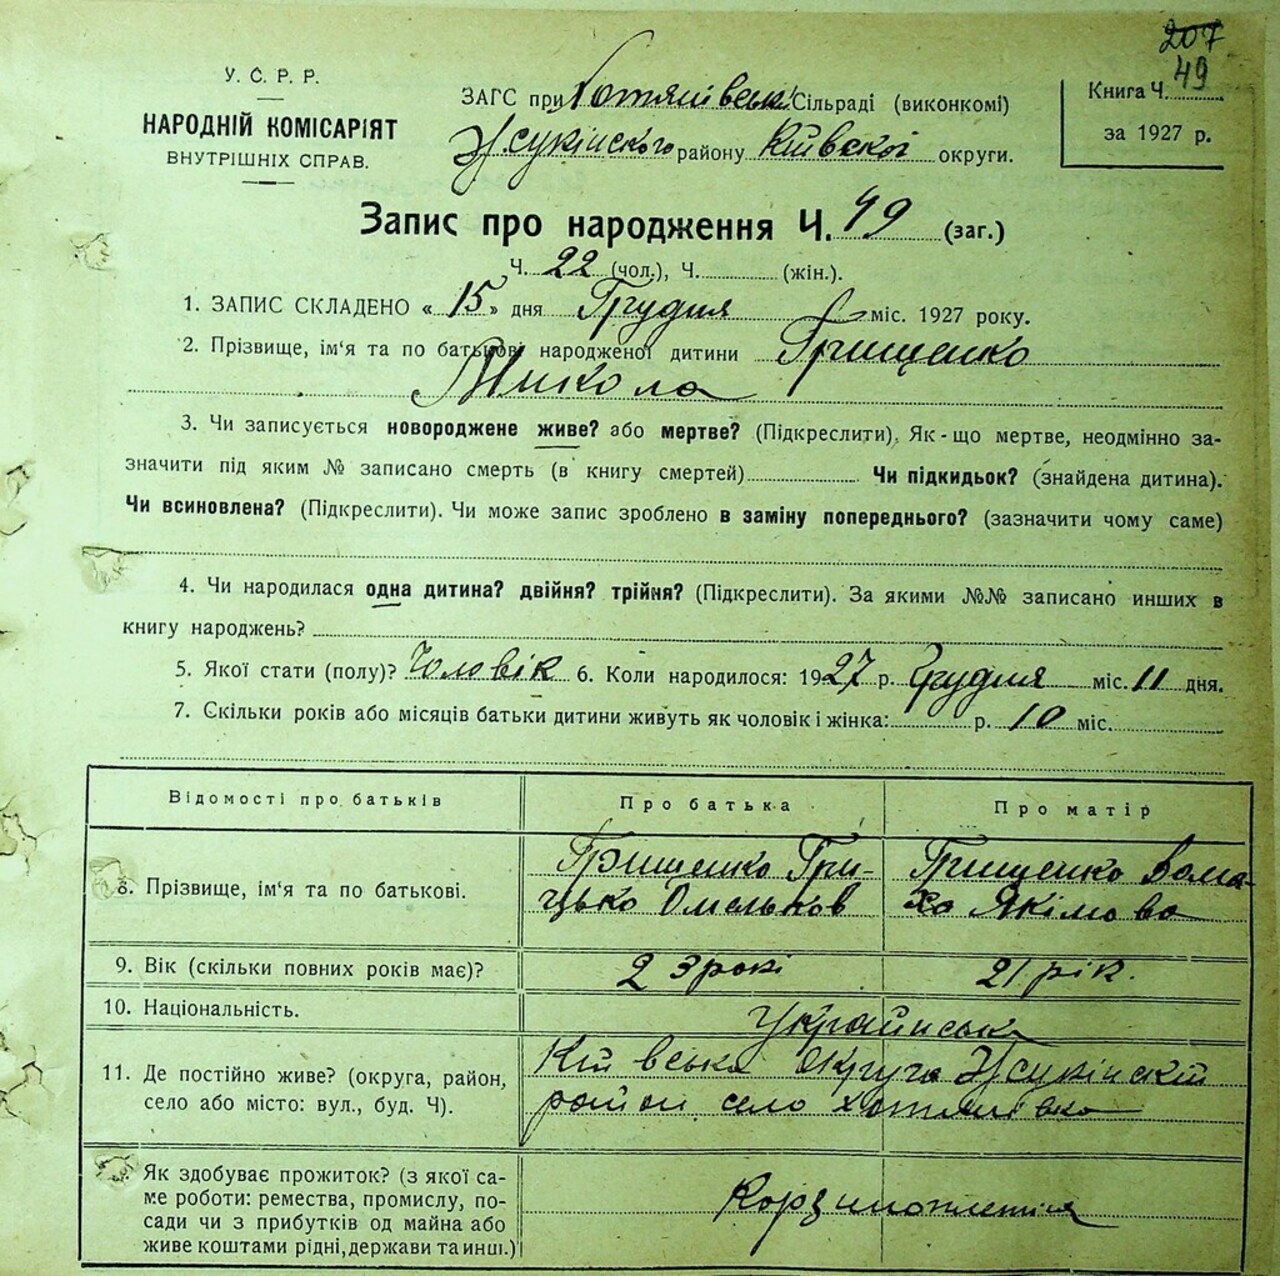 207
49
У. С. Р. Р.
НАРОДНІЙ КОМІСАРІЯТ
ВНУТРІШНІХ СПРАВ.
ЗАГС при Хотянівські Сільраді (виконкомі)
Жукінского району Київскої округи.
Книга Ч.
за 1927 р.
Запис про народження Ч. 49 (заг.)
Ч. 22 (чол.), Ч. (жін.).
1. ЗАПИС СКЛАДЕНО « 15 » дня Грудня міс. 1927 року.
2. Прізвище, ім'я та по батькові народженої дитини Грищенко
Микола
3. Чи записується новороджене живе? або мертве? (Підкреслити). Як-що мертве, неодмінно за-
значити під яким № записано смерть (в книгу смертей) Чи підкидьок? (знайдена дитина).
Чи всиновлена? (Підкреслити). Чи може запис зроблено в заміну попереднього? (зазначити чому саме)
4. Чи народилася одна дитина? двійня? трійня? (Підкреслити). За якими №№ записано инших в
книгу народжень?
5. Якої стати (полу)? Чоловік 6. Коли народилося: 1927 р. Грудня міс. 11 дня.
7. Скільки років або місяців батьки дитини живуть як чоловік і жінка: р. 10 міс.
Відомості про батьків Про батька Про матір
8. Прізвище, ім'я та по батькові.
Грищенко Гри-
цько Омельков
Грищенко Вома-
ха Якімова
9. Вік (скільки повних років має)? 23 рокі 21 рік.
10. Національність. Українська
11. Де постійно живе? (округа, район,
село або місто: вул., буд. Ч).
Київська округа Жукінскій
район село Хотянівка
Як здобуває прожиток? (з якої са-
ме роботи: ремества, промислу, по-
сади чи з прибутків од майна або
живе коштами рідні, держави та инш.)